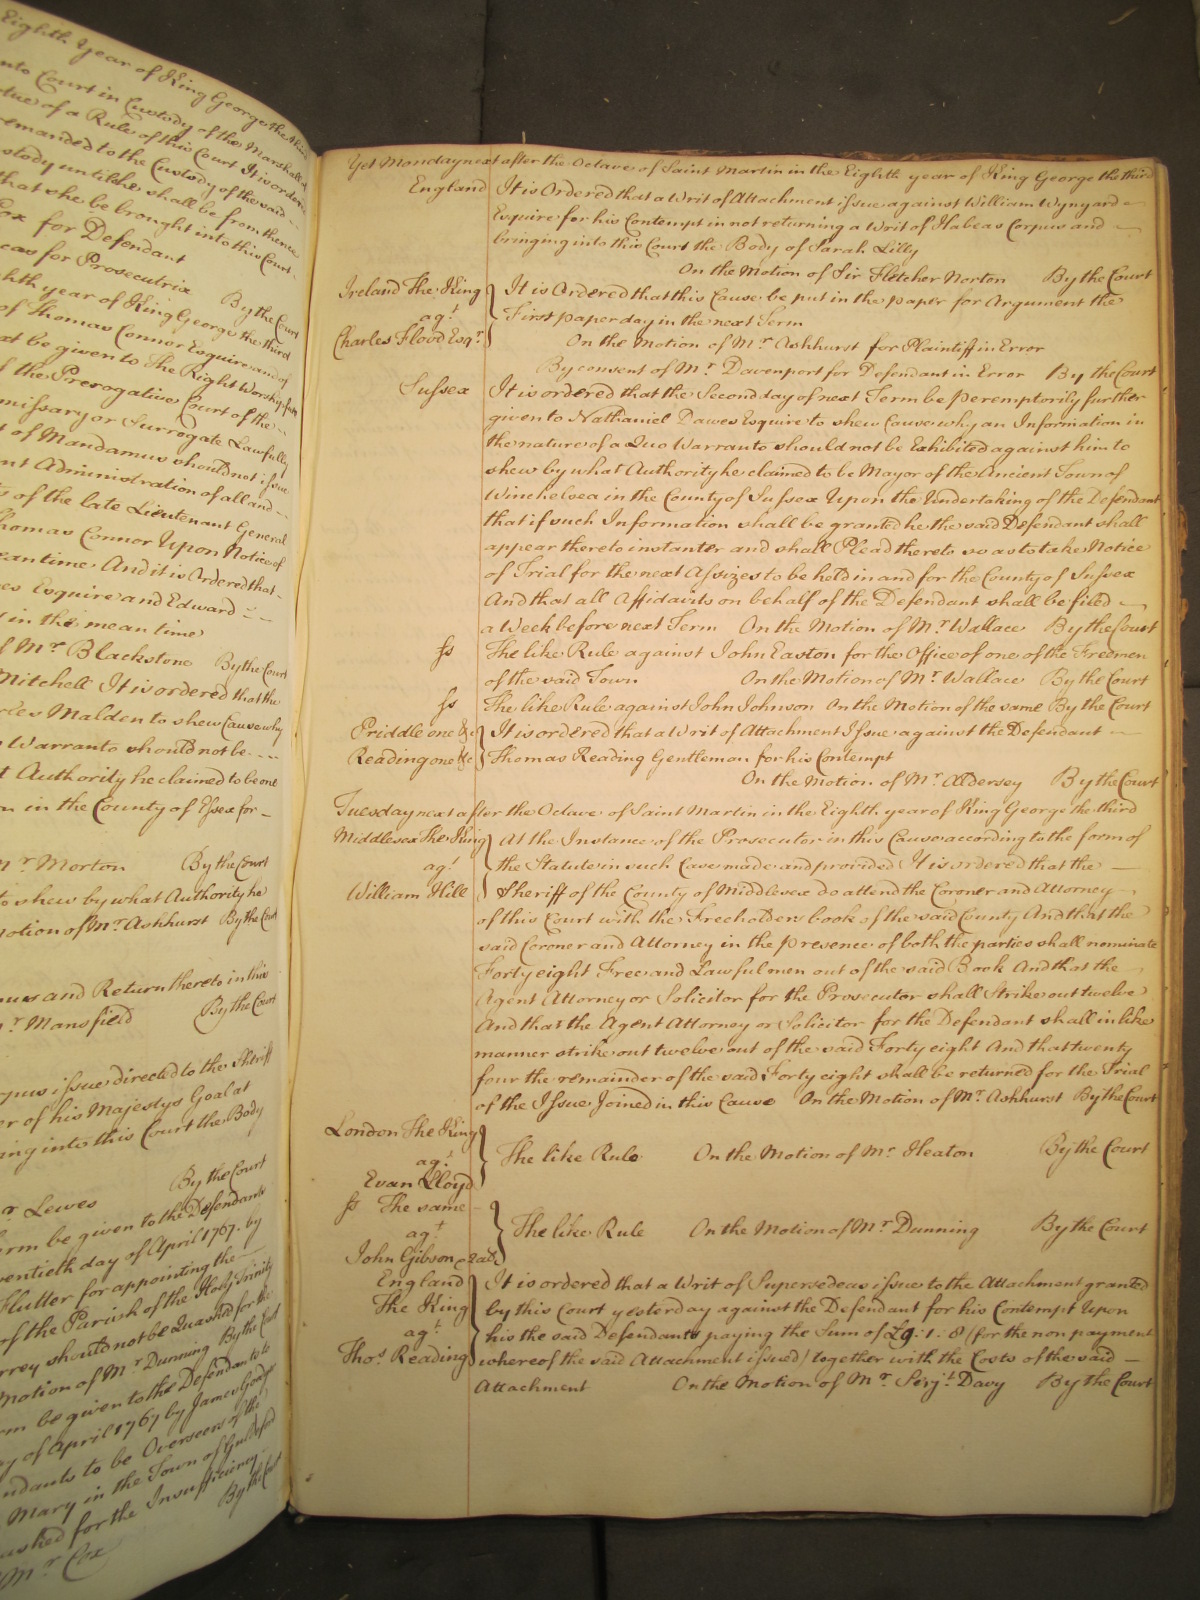 Eighth Year of King George the third
into Court in Custody of the Marshall of
virtue of a Rule of this Court It is ordered
remanded to the Custody of the said
Custody until she shall be from thence
that she be brought into this Court
Cox for Defendant
cas for Prosecutrix By the Court
Eighth year of King George the third
of Thomas Connor Esquire and of
be given to The Right Worshipfull
the Prerogative Court of the
Commissary or Surrogate Lawfully
of Mandamus should not issue
Administration of all and
of the late Lieutenant General
Thomas Connor Upon Notice of
meantime And it is Ordered that
Esquire and Edward
in the mean time
Mr Blackstone By the Court
Mitchell It is ordered that the
Charles Malden to shew Cause why
Warranto should not be
Authority he claimed to be one
in the County of Essex for
Mr Morton By the Court
to shew by what Authority he
Motion of Mr Ashhurst By the Court
and Return thereto in this
Mr Mansfield By the Court
Corpus issue directed to the Sheriff
of his Majestys Goal at
bring into this Court the Body
Mr Lewes By the Court
Term be given to the Defendants
twentieth day of April 1767. by
Flutter for appointing the
of the Parish of the Holy Trinity
Surrey should not be Quashed for the
Motion of Mr Dunning By the Court
Term be given to the Defendants to
day of April 1767 by James
Defendants to be Overseers of the
Mary in the Town of Guldeford
Quashed for the Insufficiency
By the Court
Mr Cox
Yet Monday next after the Octave of Saint Martin in the Eighth year of King George the third
England It is Ordered that a Writ of Attachment issue against William Wynyard
Esquire for his Contempt in not returning a Writ of Habeas Corpus and
bringing into this Court the Body of Sarah Lilly
On the Motion of Sir Fletcher Norton By the Court
Ireland The King It is Ordered that this Cause be put in the paper for Argument the
agt First paper day in the next Term
Charles Flood Esqr On the Motion of Mr Ashhurst for Plaintiff in Error
By consent of Mr Davenport for Defendant in Error By the Court
Sussex It is ordered that the Second day of next Term be peremptorily further
given to Nathaniel Dawes Esquire to shew Cause why an Information in
the nature of a Quo Warranto should not be Exhibited against him to
shew by what Authority he claimed to be Mayor of the Ancient Town of
Winchelsea in the County of Sussex Upon the Undertaking of the Defendant
that if such Information shall be granted he the said Defendant shall
appear thereto instanter and shall Plead thereto so as to take Notice
of Trial for the next Assizes to be hold in and for the County of Sussex
And that all Affidavits on behalf of the Defendant shall be filed
a Week before next Term On the Motion of Mr Wallace By the Court
ss The like Rule against John Easton for the Office of one of the Freemen
of the said Town On the Motion of Mr Wallace By the Court
ss The like Rule against John Johnson On the Motion of the same By the Court
Priddle one &c It is ordered that a Writ of Attachment Issue against the Defendant
Reading one &c Thomas Reading Gentleman for his Contempt
On the Motion of Mr Aldersey By the Court
Tuesday next after the Octave of Saint Martin in the Eighth year of King George the third
Middlesex The King At the Instance of the Prosecutor in this Cause according to the form of
agt the Statute in such Case made and provided It is ordered that the
William Hill Sheriff of the County of Middlesex do attend the Coroner and Attorney
of this Court with the Freeholders book of the said County And that the
said Coroner and Attorney in the presence of both the parties shall nominate
Forty eight Free and Lawful men out of the said Book And that the
Agent Attorney or Solicitor for the Prosecutor shall Strike out twelve
And that the Agent Attorney or Solicitor for the Defendant shall in like
manner strike out twelve out of the said Forty eight And that twenty
four the remainder of the said Forty eight shall be returned for the Trial
of the Issue Joined in this Cause On the Motion of Mr Ashhurst By the Court
London The King
agt The like Rule On the Motion of Mr Heaton By the Court
Evan Lloyd
ss The same
agt The like Rule On the Motion of Mr Dunning By the Court
John Gibson
England It is ordered that a Writ of Supersedeas issue to the Attachment granted
The King by this Court yesterday against the Defendant for his Contempt Upon
agt his the said Defendants paying the Sum of £9:1:8 (for the non payment
Thos Reading whereof the said Attachment issued) together with the Costs of the said
Attachment On the Motion of Mr Serjt Davy By the Court